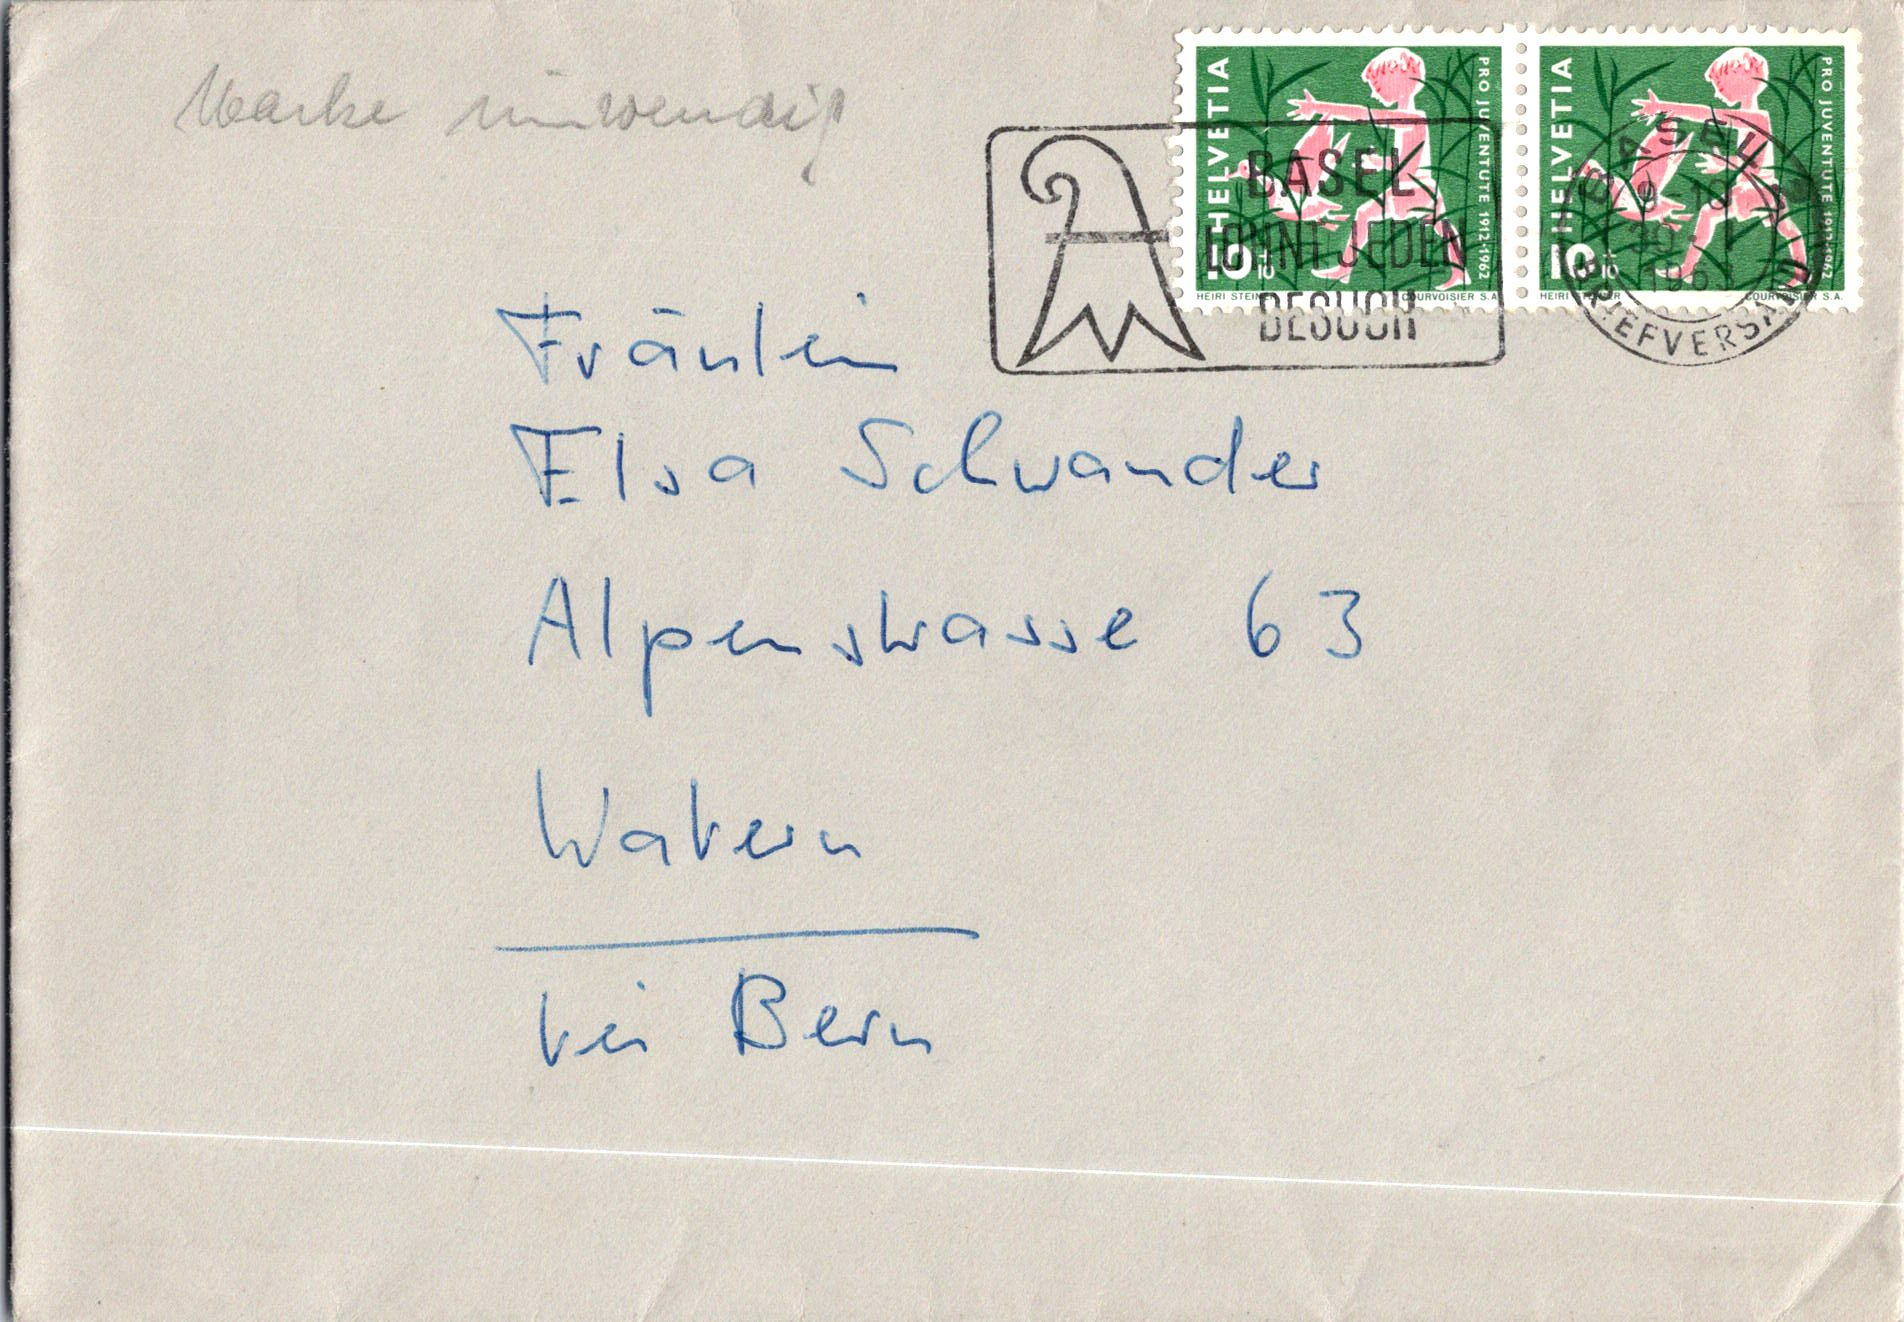 Marke
HELVETIA
PRO JUVENTUTE 1912-1962
10
10
HEIRI STEINER
COURVOISIER S.A.
HELVETIA
PRO JUVENTUTE 1912-1962
10
10
HEIRI STEINER
COURVOISIER S.A.
BASEL
LOHNT JEDEN
BESUCH
BASEL
BRIEFVERSAND
Fräulein
Elsa Schwander
Alpenstrasse 63
Wabern
bei Bern